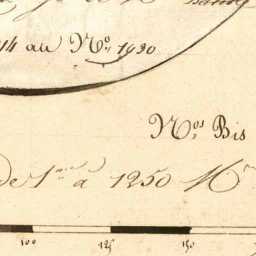 14 au Nº 1930
Nos Bis
de 1 à 1250 M
100 125 150